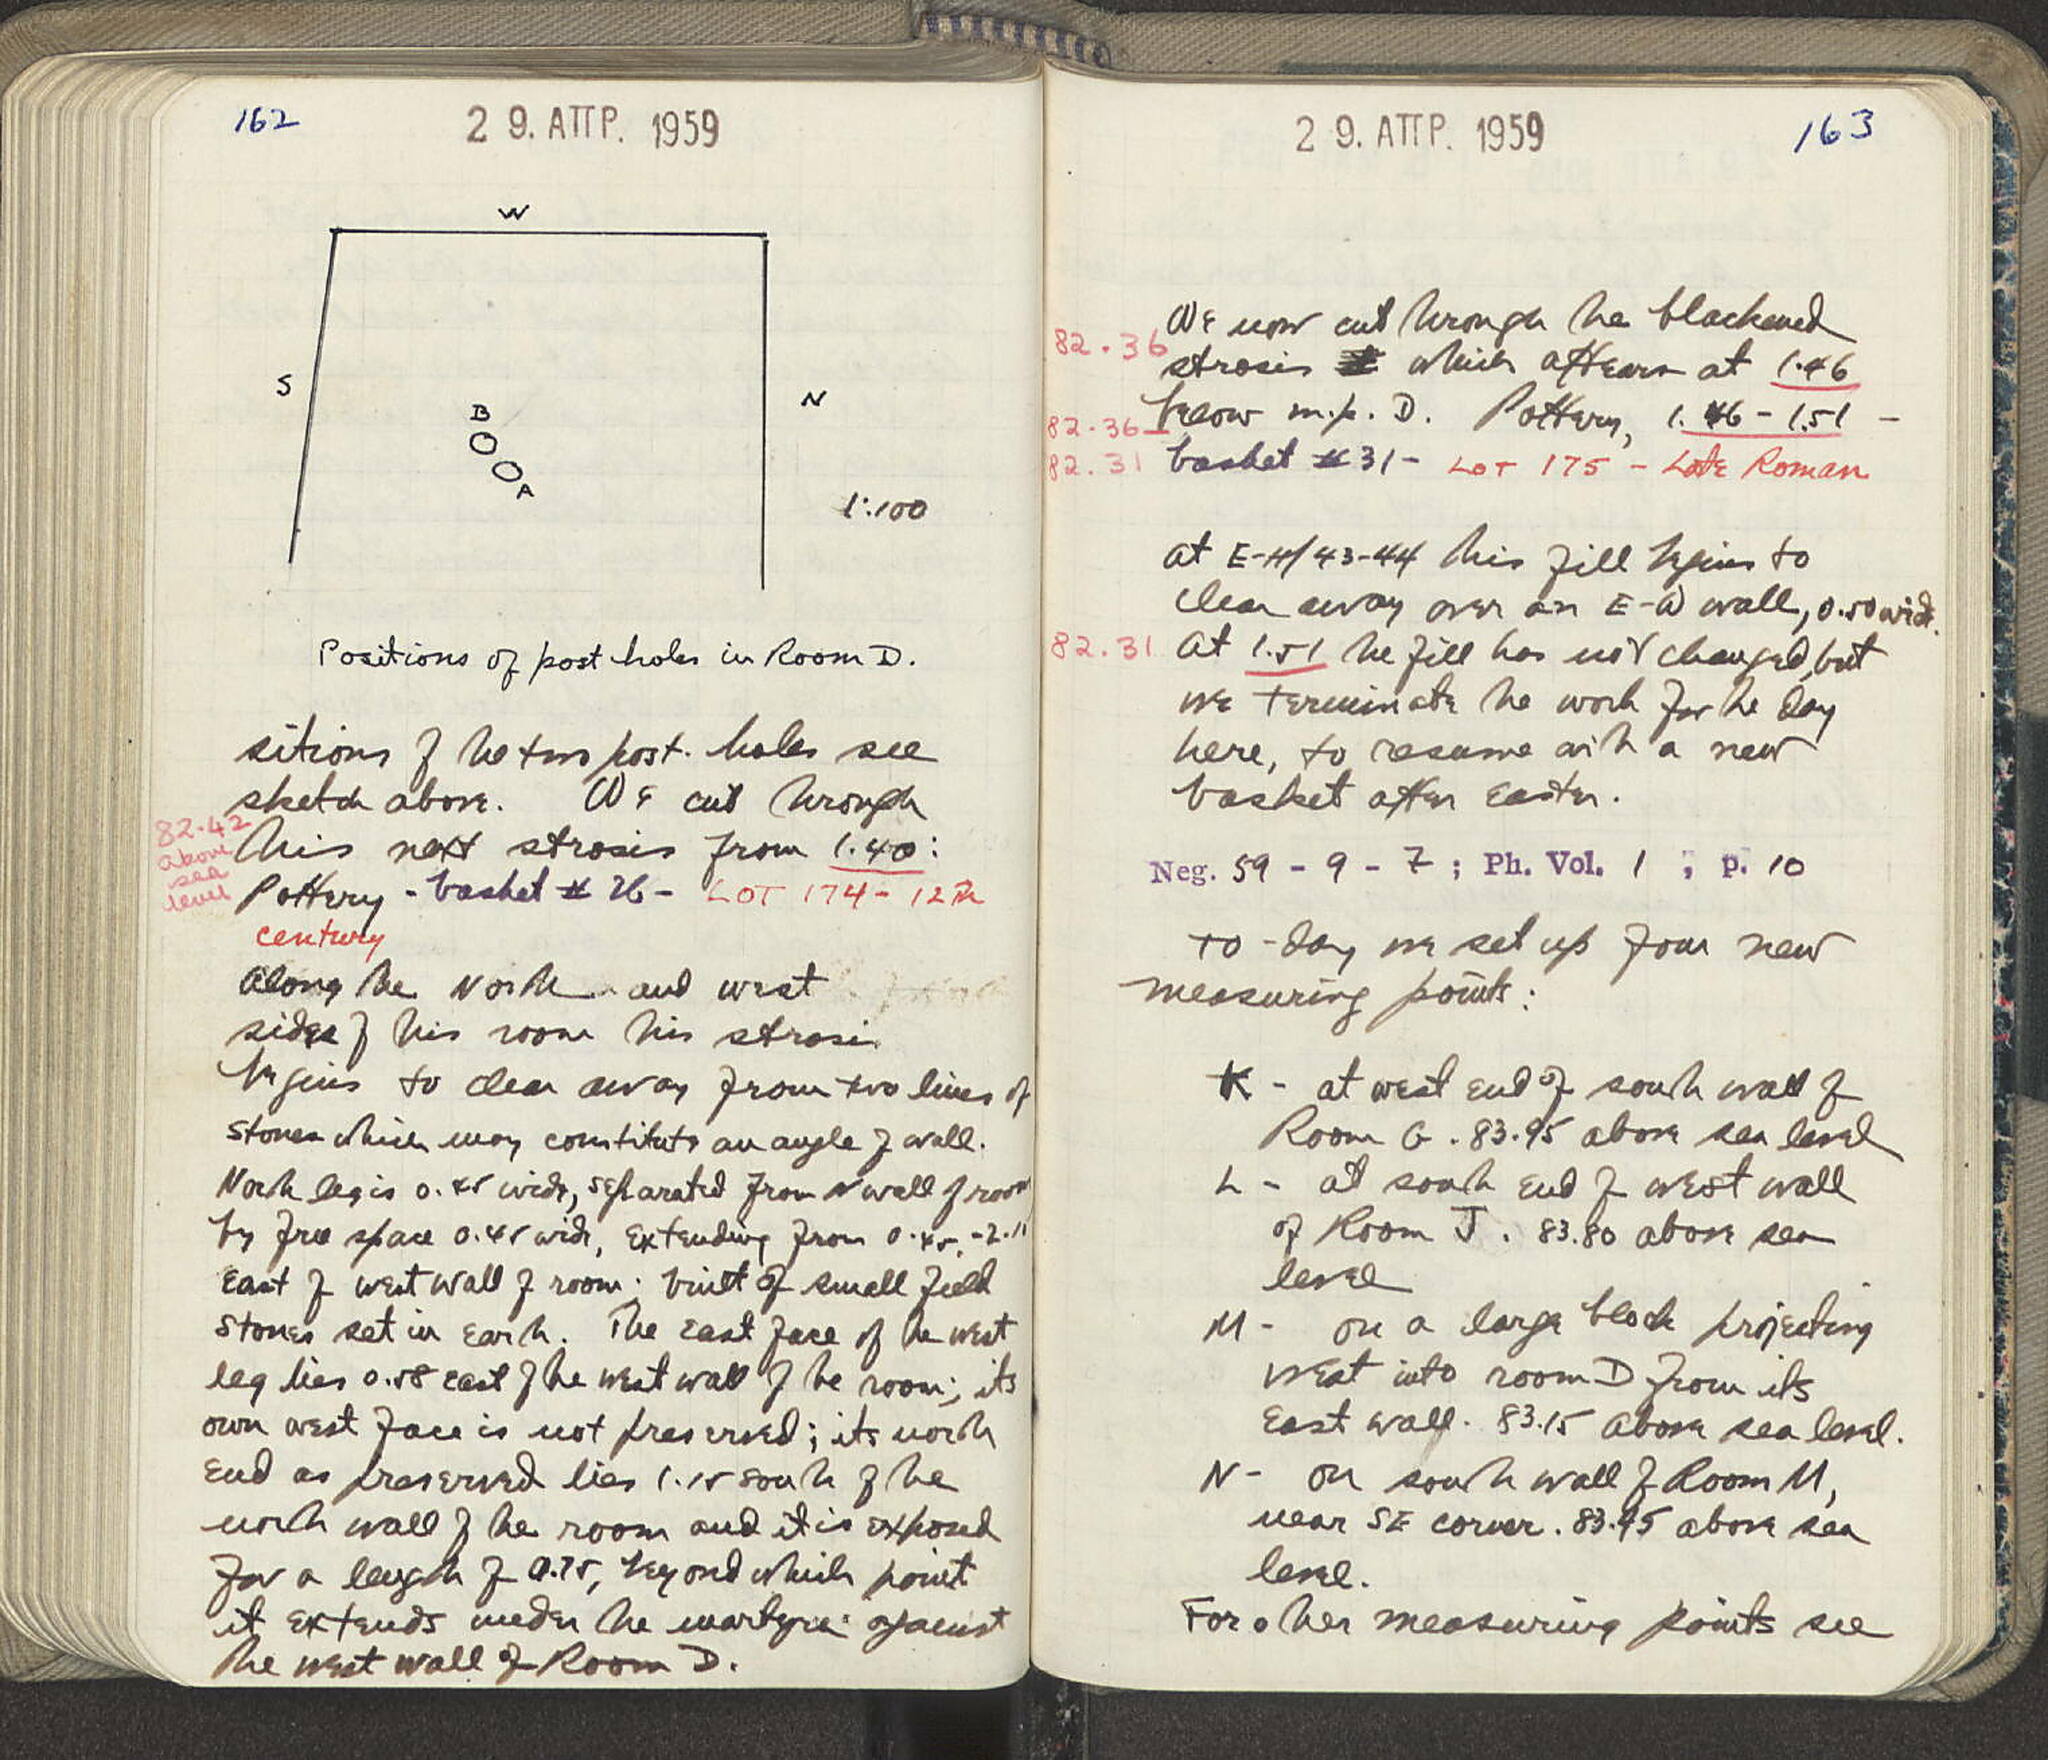 162
29. ΑΠΡ. 1959
W
S
N
B
A
1:100
Positions of post holes in Room D.
sitions of the two post-holes see
sketch above. We cut through
82.42
above
sea
level
this next strosis from 1.40:
Pottery - basket # 26 - LOT 174 - 12th
century
Along the North and west
sides of this room this strosis
begins to clear away from two lines of
stones which may constitute an angle of wall.
North leg is 0.45 wide, separated from N wall of room
by free space 0.45 wide, extending from 0.45 - 2.11
east of west wall of room; built of small field
stones set in earth. The east face of the west
leg lies 0.58 east of the west wall of the room; its
own west face is not preserved; its north
end as preserved lies 1.15 south of the
north wall of the room and it is exposed
for a length of 0.75, beyond which point
it extends under the martyri against
the west wall of Room D.
29. ΑΠΡ. 1959
163
We now cut through the blackened
82.36
strosis which appears at 1.46
below m.p. D. Pottery, 1.46 - 1.51 -
82.36 -
82.31
basket # 31 - LOT 175 - Late Roman
At E-H/43-44 this fill begins to
clear away over an E-W wall, 0.50 wide.
82.31
At 1.51 the fill has not changed, but
we terminate the work for the day
here, to resume with a new
basket after Easter.
Neg. 59 - 9 - 7 ; Ph. Vol. 1 , p. 10
To-day we set up four new
measuring points:
K - at west end of south wall of
Room G. 83.95 above sea level
L - at south end of west wall
of Room J. 83.80 above sea
level
M - on a large block projecting
west into room D from its
east wall. 83.15 above sea level.
N - on south wall of Room M,
near SE corner. 83.45 above sea
level.
For other measuring points see